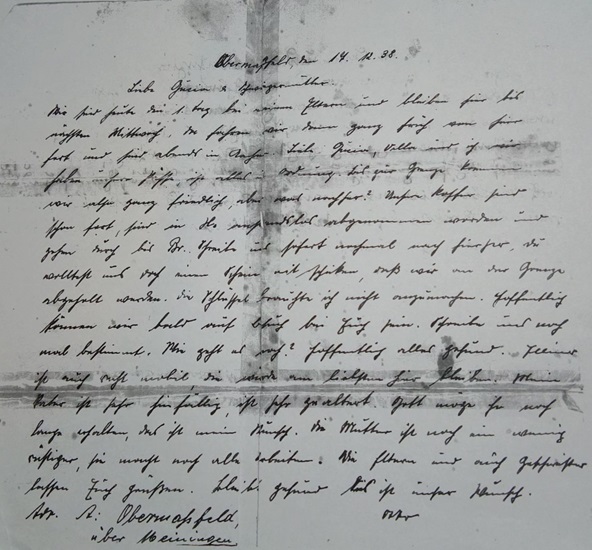 Obermaßfeld, den 14. 12. 38.
Liebe & Schwiegermutter.
Wir sind heute den 1. Tag bei meinen Eltern und bleiben hier bis
nächsten Mittwoch, da fahren wir dann ganz früh von hier
fort und sind abends in Liebe und ich wir
haben Pässe, ist alles in Ordnung bis zur Grenze kommen
wir also ganz friedlich, aber was nachher? Unsere Koffer sind
schon fort, sind in abgenommen worden und
gehen durch bis Br. Schreibe uns sofort nochmal nach hierher, Du
wolltest uns doch einen Schein mit schicken, daß wir an der Grenze
abgeholt werden. Die Schlüssel brauchte ich nicht anzumachen. Hoffentlich
können wir bald auf Besuch bei Euch sein. Schreibe uns noch
mal bestimmt. Wie geht es noch? Hoffentlich alles gesund.
ist auch recht mobil, die würde am liebsten hier bleiben. Mein
Vater ist sehr hinfällig, ist sehr gealtert. Gott möge ihn noch
lange erhalten, das ist mein Wunsch. Die Mutter ist noch ein wenig
rüstiger, sie macht noch alle Arbeiten. Die Eltern und auch Geschwister
lassen Euch grüßen. Bleibt gesund das ist unser Wunsch.
Adr. A: Obermaßfeld,
über Meiningen